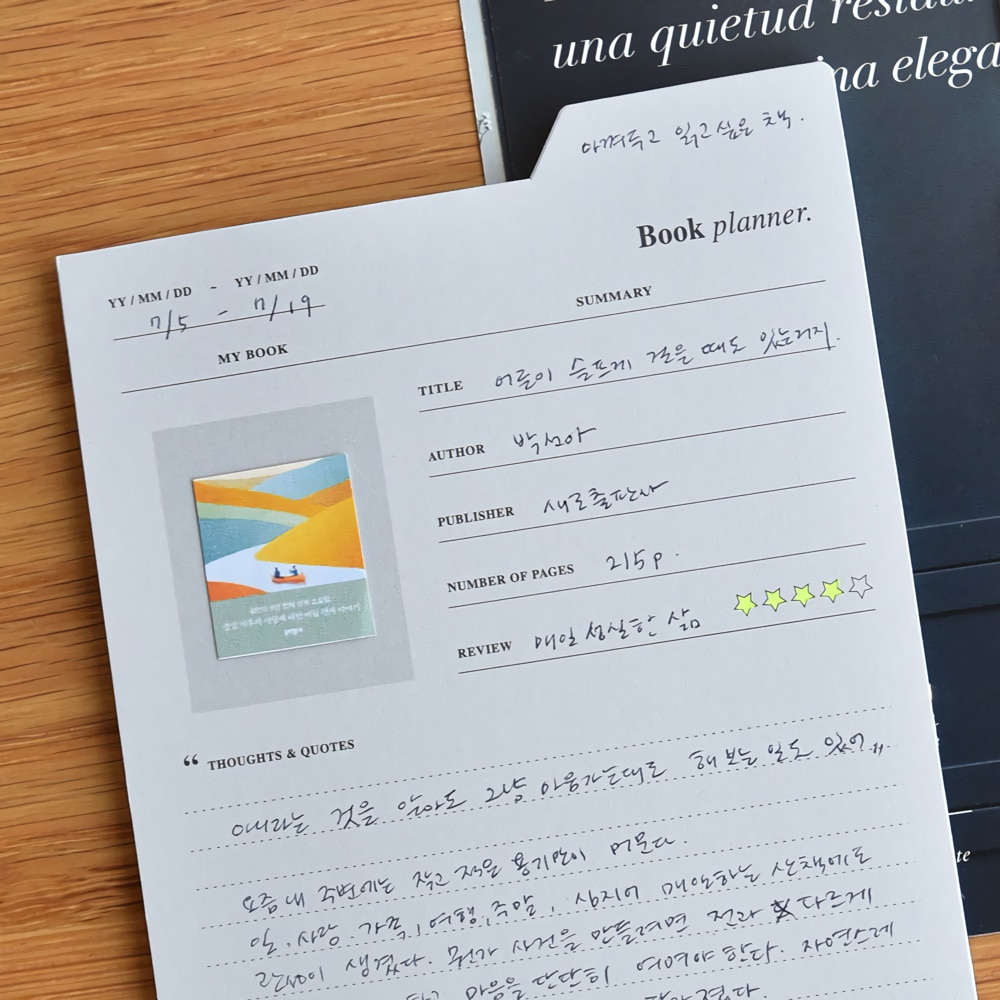 una quietud
ina elega
아껴두고 읽고싶은 책.
Book planner.
YY / MM / DD - YY / MM / DD
7/5 - 7/19
MY BOOK
SUMMARY
TITLE 어른이 슬프게 걸을 때도 있는거지.
AUTHOR 박선아
PUBLISHER 새로출판사
NUMBER OF PAGES 215p.
REVIEW 매일 성실한 삶
“ THOUGHTS & QUOTES
아니라는 것을 알아도 그냥 마음가는대로 해 보는 일도 있어,,
요즘 내 주변에는 작고 적은 용기만이 머문다.
일, 사랑, 가족, 여행, 주말, 심지어 매일하는 산책에도
생겼다. 뭔가 사건을 만들려면 전과 다르게
마음을 단단히 여며야 한다. 자연스레
te